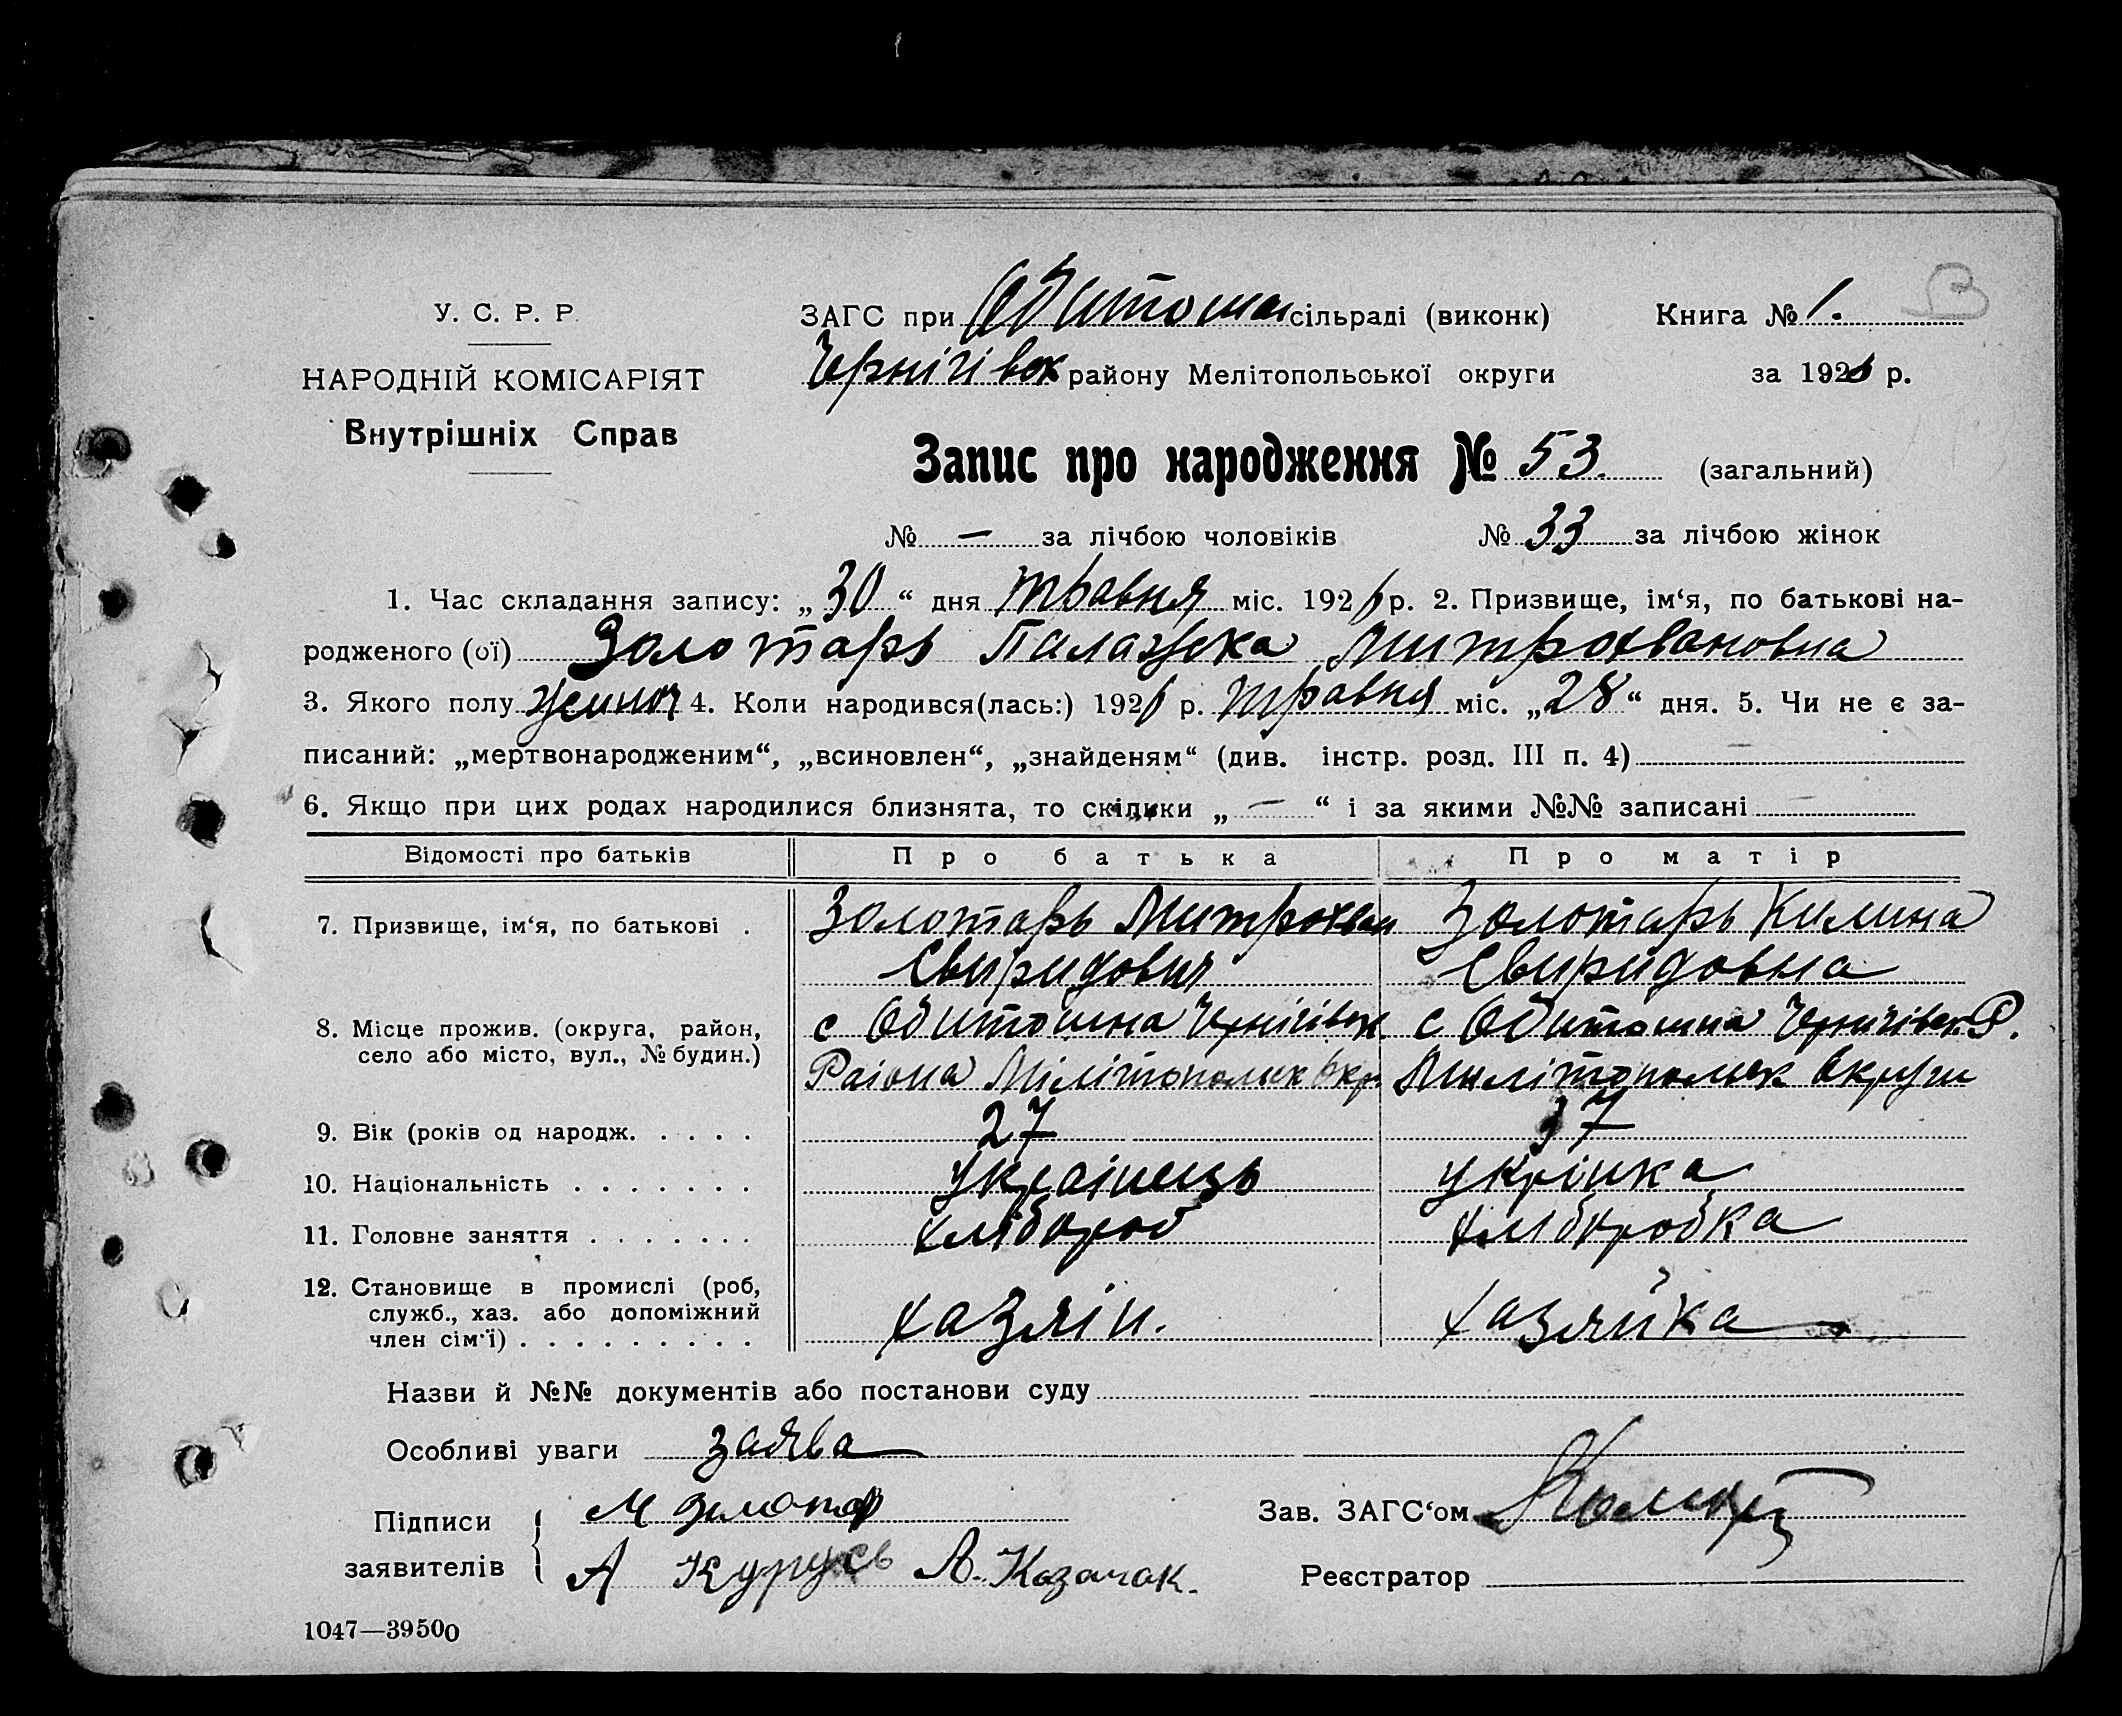 У. С. Р. Р.
НАРОДНІЙ КОМІСАРІЯТ
Внутрішніх Справ
ЗАГС при Обитошан сільраді (виконк) Книга № 1.
Чернігівск району Мелітопольської округи за 1926 р.
Запис про народження № 53. (загальний)
№ — за лічбою чоловіків № 33 за лічбою жінок
1. Час складання запису: „ 30 “ дня травня міс. 1926 р. 2. Призвище, ім‘я, по батькові на-
родженого (ої) Золотарь Палажка Митрохвановна
3. Якого полу жиноч 4. Коли народився(лась:) 1926 р. травня міс. „28“ дня. 5. Чи не є за-
писаний: „мертвонародженим“, „всиновлен“, „знайденям“ (див. інстр. розд. III п. 4) —
6. Якщо при цих родах народилися близнята, то скільки „ — “ і за якими №№ записані —
Відомості про батьків Про батька Про матір
7. Призвище, ім‘я, по батькові . Золотарь Митрохван Золотарь Килина
Свиридович Свиридовна
8. Місце прожив. (округа, район, с Обитошна Чернігівск с Обитошна Чернігівск Р.
село або місто, вул., № будин.) Раіона Мілітопольск Окр. Милітопольск Округи
9. Вік (років од народж. . . . . 27 37
10. Національність . . . . . . . Українець укрінка
11. Головне заняття . . . . . . . хлібороб хлиборобка
12. Становище в промислі (роб,
служб., хаз. або допоміжний хазяін. хазяйка
член сім‘ї) . . . . . . . . .
Назви й №№ документів або постанови суду
Особливі уваги заява
Підписи М Золотар Зав. ЗАГС‘ом
заявителів А Курусь А. Козачок. Реєстратор
1047—39500